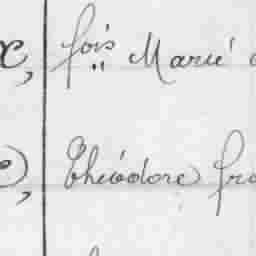 fois Marié
Théodore fra